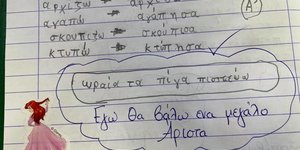 αρχίζω → άρχισα
αγαπώ → αγάπησα
σκουπίζω → σκούπισα
κτυπώ → κτύπησα
Α'
ωραία τα πίγα πιστεύω
Εγώ θα βάλω ενα μεγάλο
Αριστα